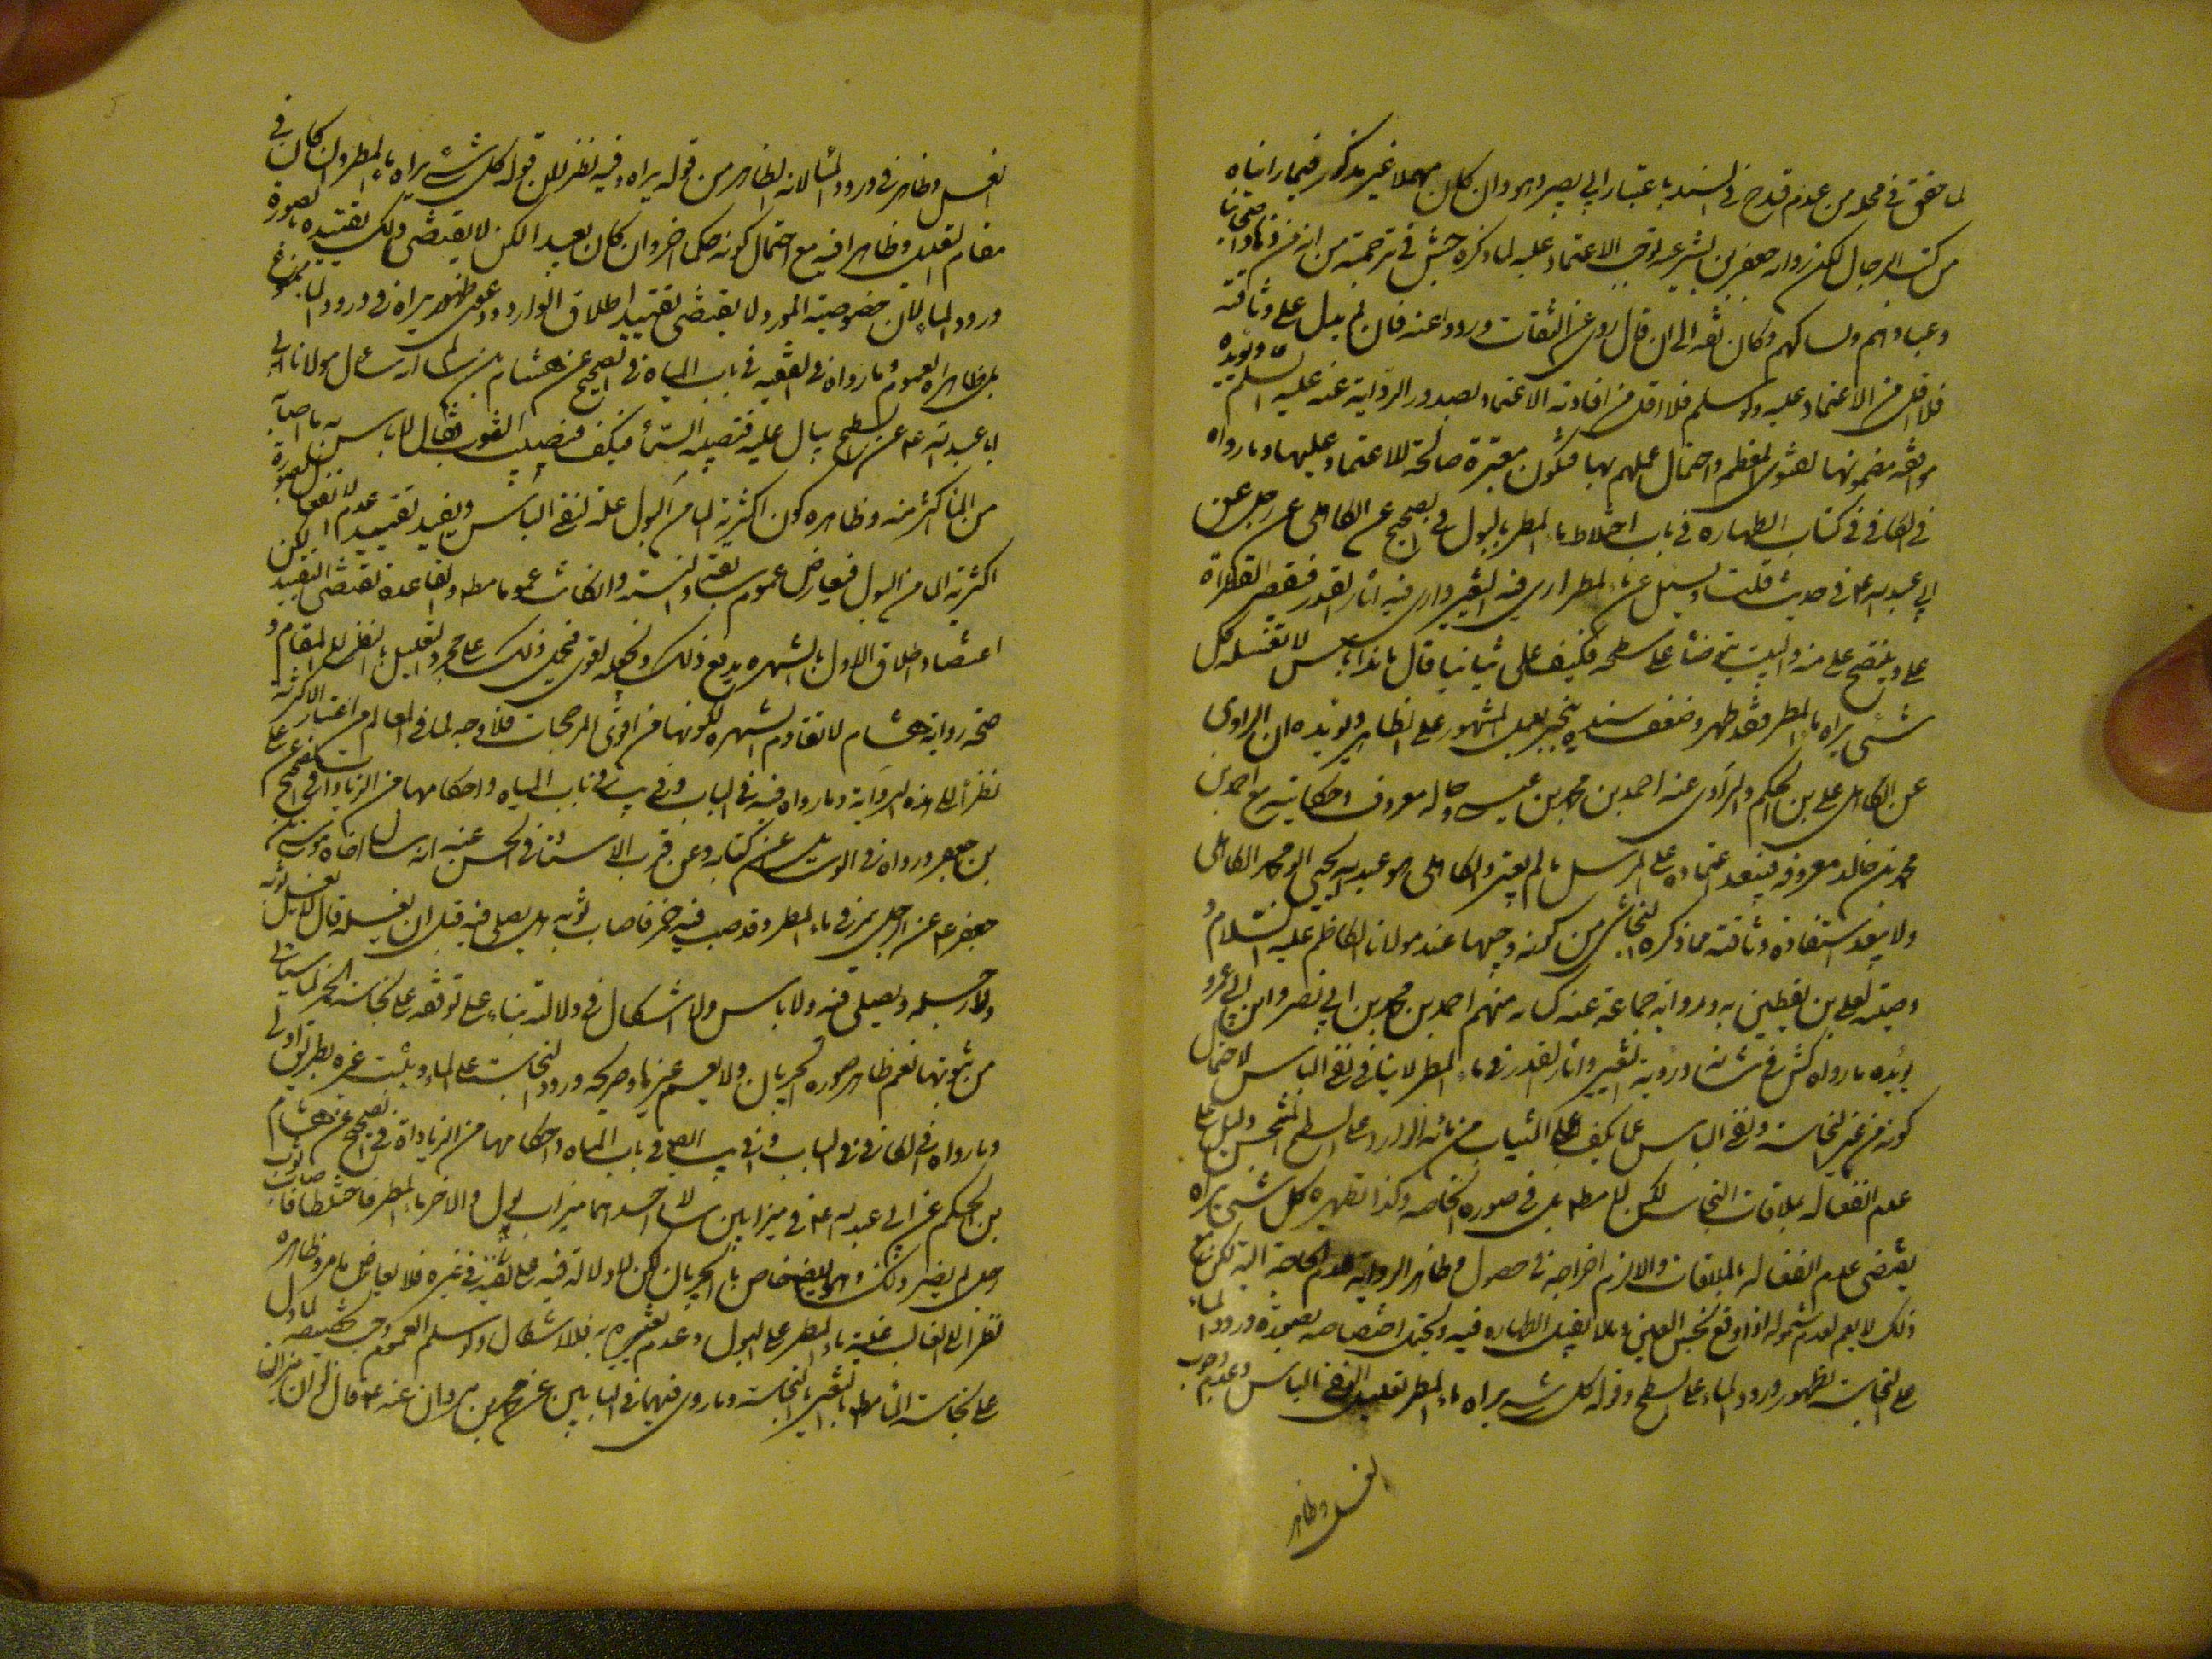 لما حقق في محله من عدم قدح في السند باعتبار ابي بصير وهو وان كان مهملا غير مذكور فيما رايناه
من كتب الرجال لكن رواية جعفر بن بشير عنه توجب الاعتماد عليه لما ذكره جش في ترجمته من انه من زهاد اصحابنا
وعبادهم ونساكهم وكان ثقة الى ان قال روى عن الثقات ورووا عنه فان لم يدل على وثاقته
فلا اقل من الاعتماد عليه ولو سلم فلا اقل من افادته الاعتماد بصدور الرواية عنه عليه السلم ويؤيده
موافقة مضمونها لفتوى المعظم واحتمال عملهم بها فتكون معتبرة صالحة للاعتماد عليها وما رواه
في الكافي في كتاب الطهارة في باب اختلاط ماء المطر بالبول في الصحيح عن الكاهلي عن رجل عن
ابي عبد الله ع في حديث قلت ويسيل عن ماء المطر ارى فيه التغير وارى فيه اثار القذر فتقطر القطرات
علي وينتضح علي منه والبيت يتوضأ على سطحه فيكف على ثيابنا قال ما بذا باس لا تغسله كل
شيء يراه ماء المطر فقد طهر وضعف سنده ينجبر بعمل المشهور على الظاهر ويؤيده ان الراوي
عن الكاهلي علي بن الحكم والراوي عنه احمد بن محمد بن عيسى وحاله معروف وحكايته مع احمد بن
محمد بن خالد معروفة فيبعد اعتماده على المرسل ما لم يعتبر والكاهلي هو عبد الله بن يحيى ابو محمد الكاهلي
ولا يبعد استفادة وثاقته مما ذكره النجاشي من كونه وجيها عند مولانا الكاظم عليه السلام و
وصيته لعلي بن يقطين به ورواية جماعة عنه كتابه منهم احمد بن محمد بن ابي نصر وابن ابي عمير و
يؤيده ما رواه كش في شانه ورؤية التغير واثار القذر في ماء المطر لا ينافي نفي الباس لاحتمال
كونه من غير النجاسة ونفي الباس عما يكف على الثياب من مائه الوارد على السطح المتنجس دليل على
عدم انفعاله بملاقات النجاس لكن لا مطلقا بل في صورة الخاصة وكذا تطهيره كل شيء يراه
يقتضي عدم انفعاله بالملاقات والا لزم اخراجه في حصول وظاهر الرواية عدم الحاجة اليه لكن
ذلك لا يعم لعدم شموله اذا وقع نجس العين وما لا يقبل الطهارة فيه ويحتمل اختصاصه بصورة ورود الماء
على النجاسة لظهور ورود الماء على السطح وقوله كل شيء يراه ماء المطر تعليل لنفي الباس وعدم وجوب
الغسل وظاهر
الغسل وظاهر في ورود الماء لانه الظاهر من قوله يراه وفيه نظر لان قوله كل شيء يراه ماء المطر وان كان في
مقام التعليل وظاهرا فيه مع احتمال كونه حكما اخر وان كان بعيدا لكن لا يقتضي ذلك تقييده بصورة
ورود الماء لان خصوصية المورد لا يقتضي تقييد اطلاق الوارد ودعوى ظهور يراه في ورود الماء ممنوع
بل ظاهره العموم وما رواه في الفقيه في باب المياه في الصحيح عن هشام بن سالم انه سئل مولانا
ابا عبد الله ع عن السطح يبال عليه فتصيبه السماء فيكف فيصيب الثوب فقال لا باس به ما اصابه
من الماء اكثر منه وظاهره كون اكثرية الماء من البول علة لنفي الباس ويفيد تقييد عدم الانفعال بصورة
اكثرية الماء من البول فيعارض عموم سابقته والنسبة وان كانت عموما مطلقا والقاعدة تقتضي التقييد لكن
اعتضاد اطلاق الاول بالشهرة يدفع ذلك ويجعله اقوى فيحمل ذلك على مجرد التعليل بالنظر الى المقام و
صحة رواية هشام لا تقاوم الشهرة لكونها من اقوى المرجحات فلا وجه لما في المعالم من اعتبار الاكثرية
نظرا الى هذه الرواية وما رواه فيه في الباب وفي يب في باب المياه واحكامها من الزيادات في الصحيح عن علي
بن جعفر ورواه في الوسائل عن كتابه وعن قرب الاسناد في الحسن عنه انه سال اخاه موسى بن
جعفر ع عن الرجل يمر في ماء المطر وقد صب فيه خمر فاصاب ثوبه هل يصلي فيه قبل ان يغسله قال لا يغسل ثوبه
ولا رجله ويصلي فيه ولا باس ولا اشكال في دلالته بناء على توقفه على نجاسة الخمر لما سياتي
من ثبوتها نعم ظاهر صورة الجريان ولا يعم غيرها وصريحه ورود النجاسة على الماء ويثبت غيره بطريق اولى
وما رواه في الكافي في الباب وفي يب في باب المياه واحكامها من الزيادات في الصحيح عن هشام
بن الحكم عن ابي عبد الله ع في ميزابين سالا احدهما ميزاب بول والاخر ماء المطر فاختلطا فاصاب ثوب
رجل لم يضر ذلك وهو ايضا خاص بالجريان لكن لا دلالة فيه على تقييد في غيره فلا يعارض ما مر وظاهره
نظرا الى الغالب غلبة ماء المطر على البول وعدم تغيره به فلا اشكال ولو سلم العموم وجب تخصيصه لما دل
على نجاسة الماء مطلقا بالتغير بالنجاسة وما روى فيهما في البابين عن محمد بن مروان عنه ع قال لو ان ميزابين